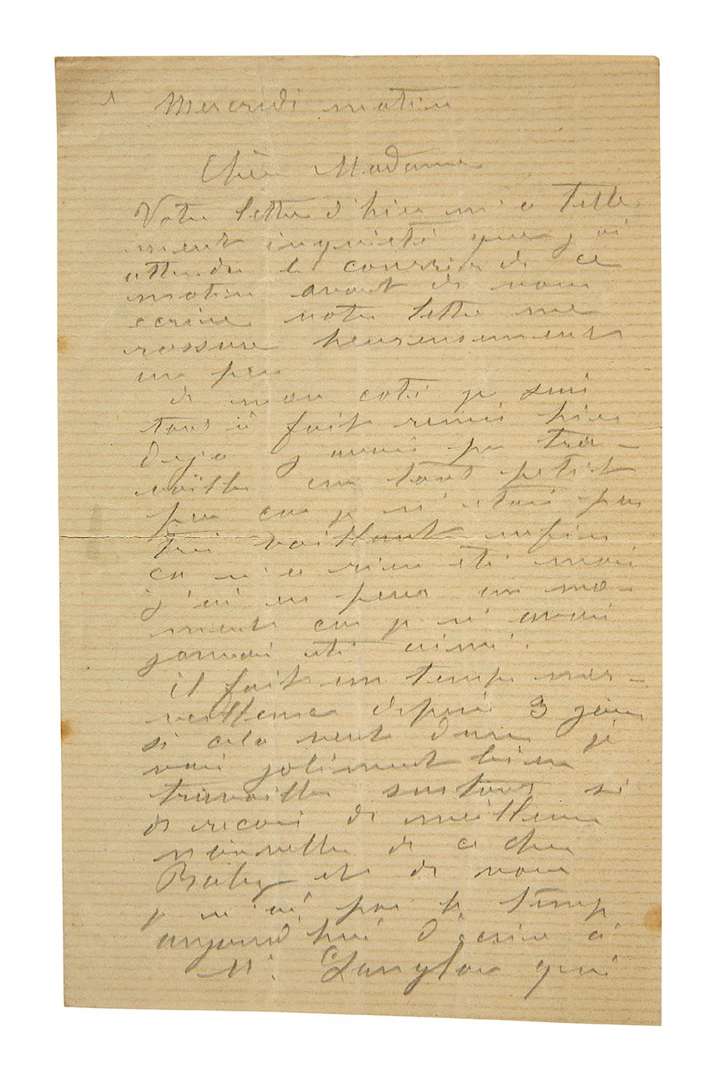 Mercredi matin
Chère Madame
Votre lettre d'hier m'a telle
ment inquiété que j'ai
attendu le courrier de ce
matin avant de vous
écrire votre lettre me
rassure heureusement
un peu
de mon coté je suis
tout à fait remis hier
deja j'avais pu tra-
vailler un tout petit
peu car je n'étais pas
très vaillant enfin
ca n'a rien été mais
j'ai eu peur un mo-
ment car je n'avais
jamais été
il fait un temps mer-
veilleux depuis 3 jours
si cela veut durer je
vais joliment bien
travailler surtout si
je recois de meilleures
nouvelles de ce cher
Baby et de vous
je n'ai pas le temps
aujourd'hui d'écrire à
M. qui